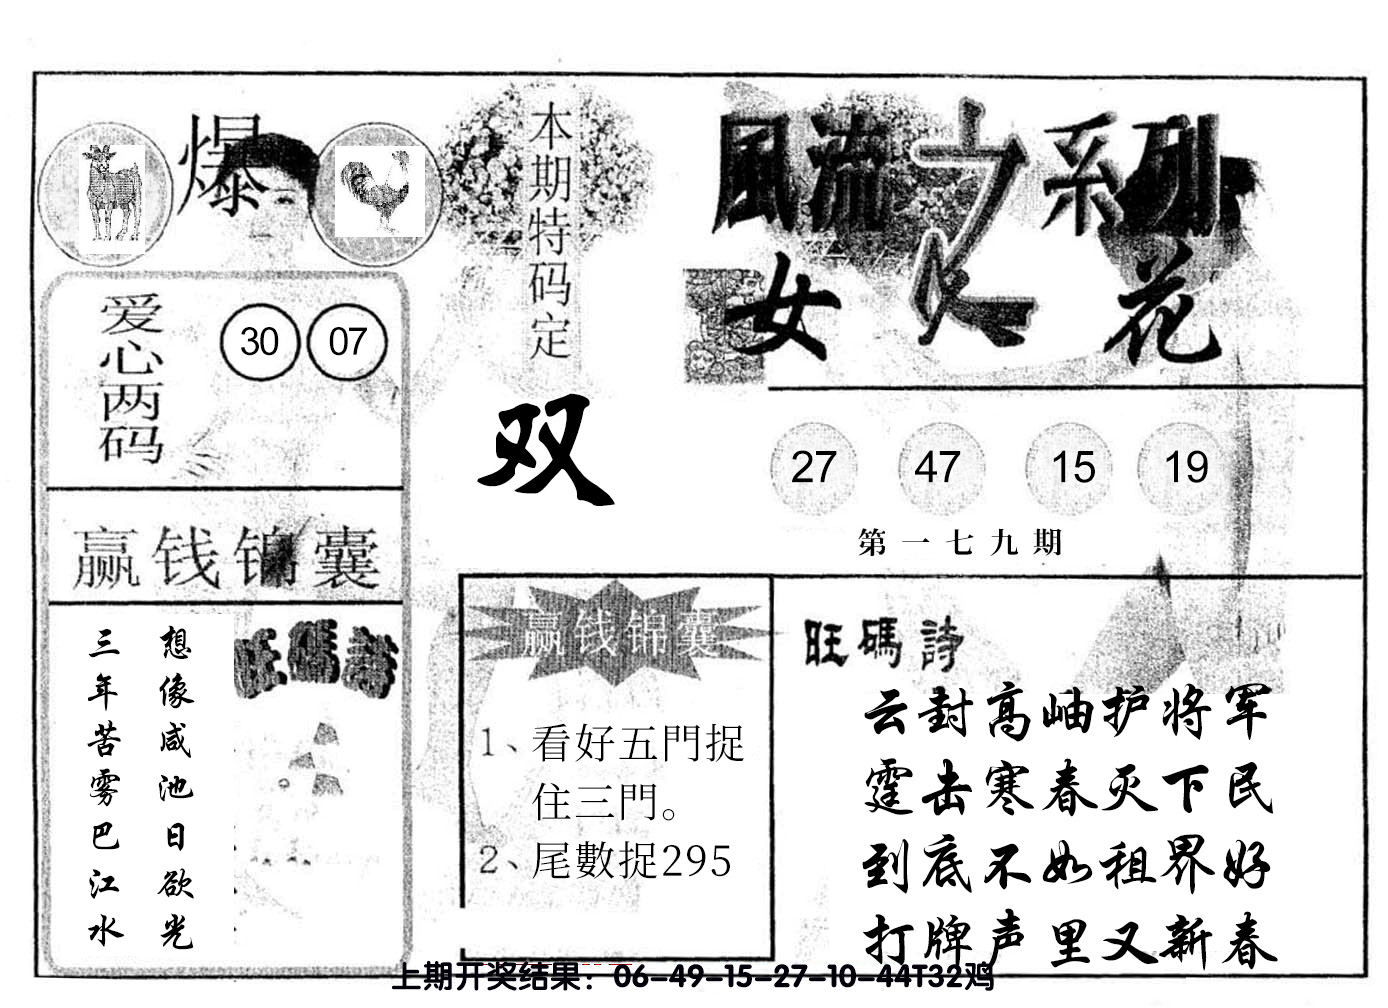 爆
本期特码定
双
風流之系列
女人花
爱心两码
30 07
27 47 15 19
第一七九期
赢钱锦囊
想像咸池日欲光
三年苦雾巴江水
旺碼詩
赢钱锦囊
1、看好五門捉
住三門。
2、尾數捉295
旺碼詩
云封高岫护将军
霆击寒春灭下民
到底不如租界好
打牌声里又新春
上期开奖结果：06-49-15-27-10-44T32鸡